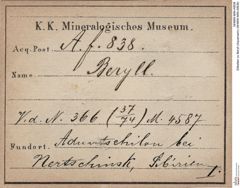 K. K. Mineralogisches Museum.
Acq. Post A. f. 838.
Name Beryll.
V. d. N. 366 (37/74) M. 4587
Fundort. Aduntschilon bei
Nertschinsk, Sibirien
I.